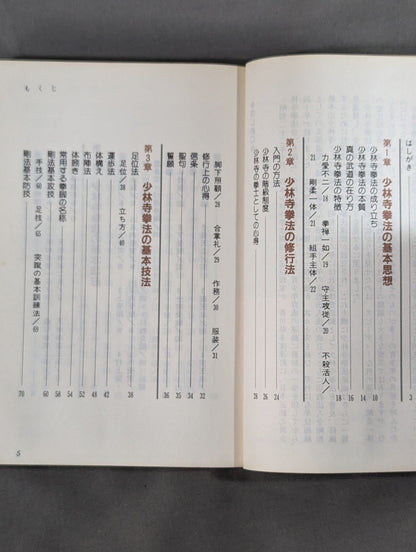 はしがき 3
第1章 少林寺拳法の基本思想
少林寺拳法の成り立ち 10
少林寺拳法の本質 14
真の武道の在り方 16
少林寺拳法の特徴 18
力愛不二／18 拳禅一如／19 守主攻従／20 不殺活人／
21 剛柔一体／21 組手主体／22
第2章 少林寺拳法の修行法
入門の方法 24
少林寺の階級制度 26
少林寺の拳士としての心得 28
脚下照顧／28 合掌礼／29 作務／30 服装／31
修行上の心得 32
信条 34
聖句 35
誓願 36
第3章 少林寺拳法の基本技法
足位法 38
足位／38 立ち方／40
運歩法 42
体構え 48
布陣法 52
体捌き 54
常用する拳脚の名称 58
剛法基本攻技 60
手技／60 足技／65 突蹴の基本訓練法／69
剛法基本防技 70
もくじ
5